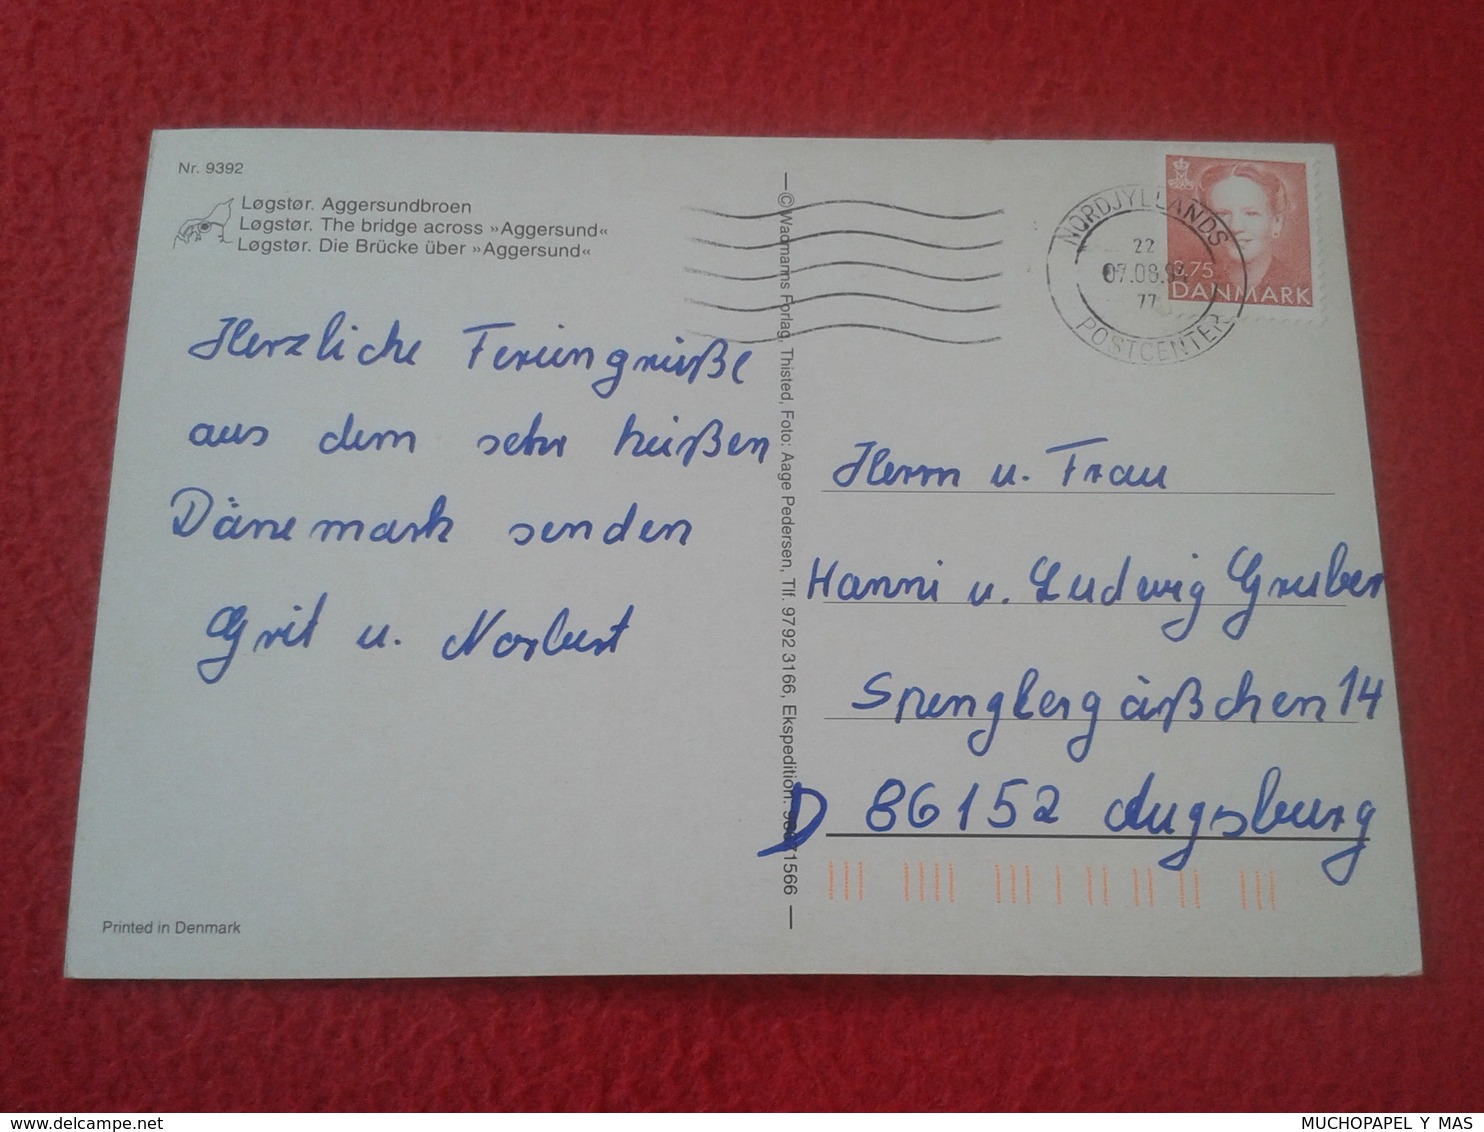 Nr. 9392
Løgstør. Aggersundbroen
Løgstør. The bridge across »Aggersund«
Løgstør. Die Brücke über »Aggersund«
Herzliche Feriengrüße
aus dem sehr heißen
Dänemark senden
Grit u. Norbert
Printed in Denmark
© Wadmanns Forlag, Thisted, Foto: Aage Pedersen, Tlf. 9792 3166, Ekspedition:
NORDJYLLANDS
22
07.08.94
77
POSTCENTER
3.75
DANMARK
Herrn u. Frau
Hanni u. Ludwig Gruber
Spenglergäßchen 14
D 86152 Augsburg
MUCHOPAPEL Y MAS